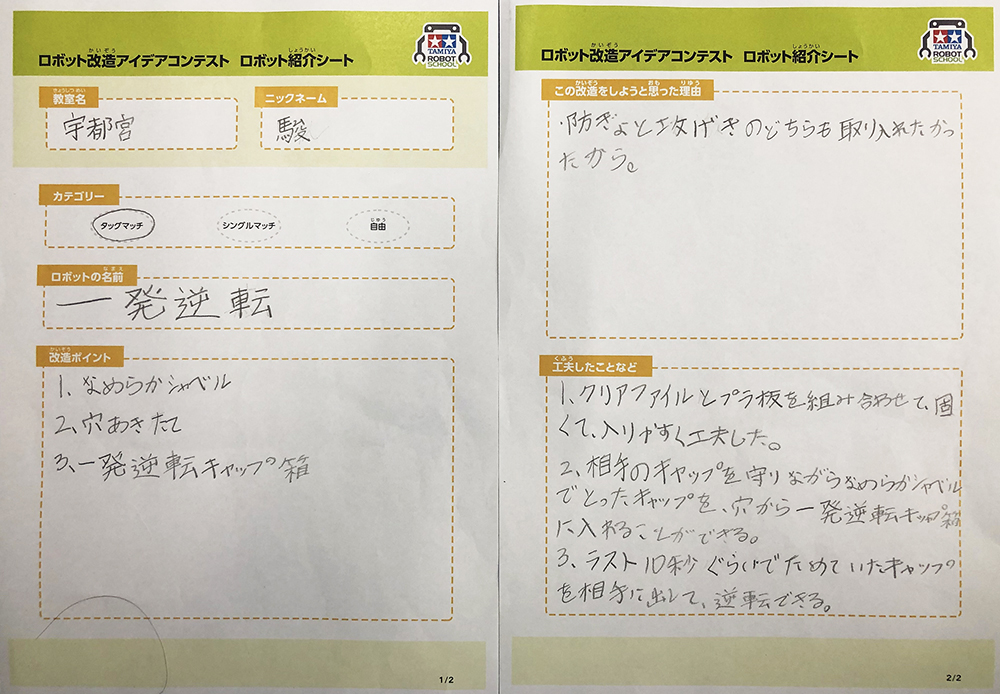 ロボット改造アイデアコンテスト ロボット紹介シート
TAMIYA
ROBOT
SCHOOL
教室名
宇都宮
ニックネーム
駿
カテゴリー
タッグマッチ
シングルマッチ
自由
ロボットの名前
一発逆転
改造ポイント
1、なめらかシャベル
2、穴あきたて
3、一発逆転キャップの箱
1/2
ロボット改造アイデアコンテスト ロボット紹介シート
TAMIYA
ROBOT
SCHOOL
この改造をしようと思った理由
・防ぎょと攻げきのどちらも取り入れたかっ
たから。
工夫したことなど
1、クリアファイルとプラ板を組み合わせて、固
くて、入りやすく工夫した。
2、相手のキャップを守りながらなめらかシャベル
でとったキャップを、穴から一発逆転キャップ箱
に入れることができる。
3、ラスト10秒ぐらいでためていたキャップ
を相手に出して、逆転できる。
2/2